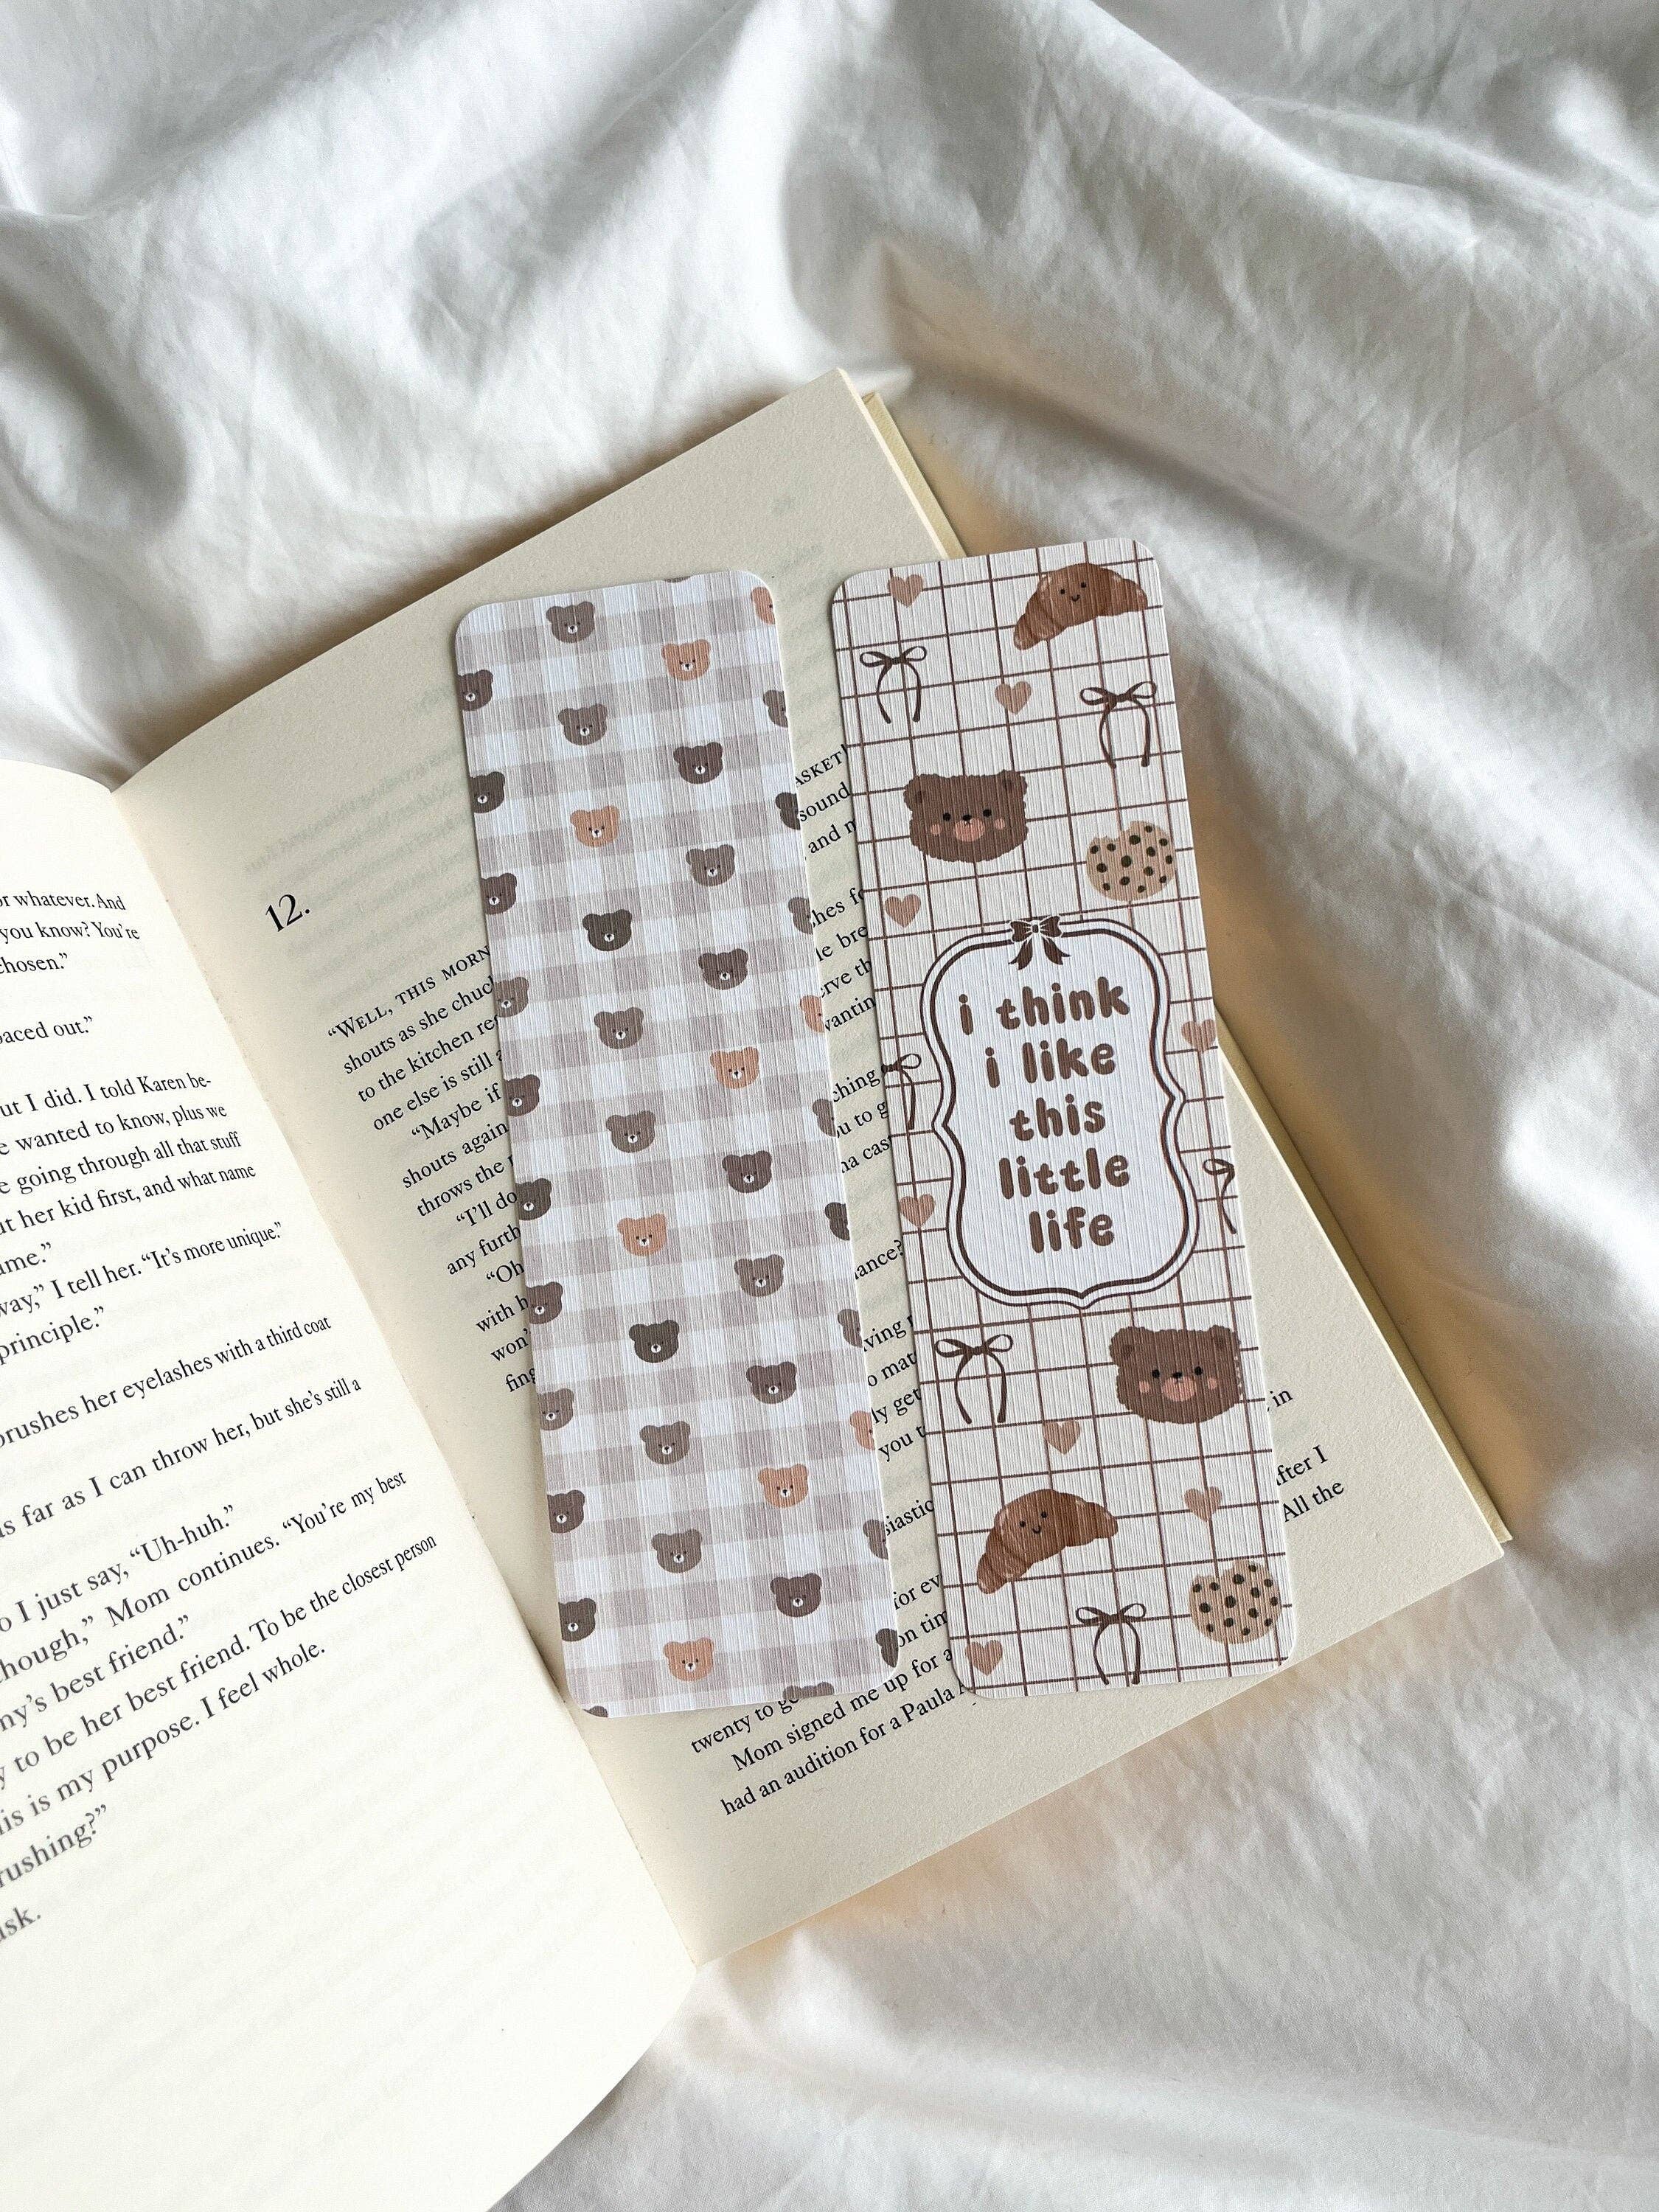 or whatever. And
you know? You're
chosen."
paced out."
ut I did. I told Karen be-
e wanted to know, plus we
e going through all that stuff
ut her kid first, and what name
ame."
way," I tell her. "It's more unique."
principle."
brushes her eyelashes with a third coat
as far as I can throw her, but she's still a
o I just say, "Uh-huh."
hough," Mom continues. "You're my best
ny's best friend."
y to be her best friend. To be the closest person
is is my purpose. I feel whole.
rushing?"
ask.
12.
"WELL, THIS MORN
shouts as she chuc
to the kitchen re
one else is still a
"Maybe if
shouts again
throws the
"I'll do
any furth
"Oh
with h
won'
fing
ASKET!
sound
and m
hes fo
le bre
erve th
wantin
ching
ou to g
na cas
ance?
ving
o mat
ly get
you t
in
after I
siastic
All the
for ev
on tim
twenty to ge
Mom signed me up for a
had an audition for a Paula
i think
i like
this
little
life